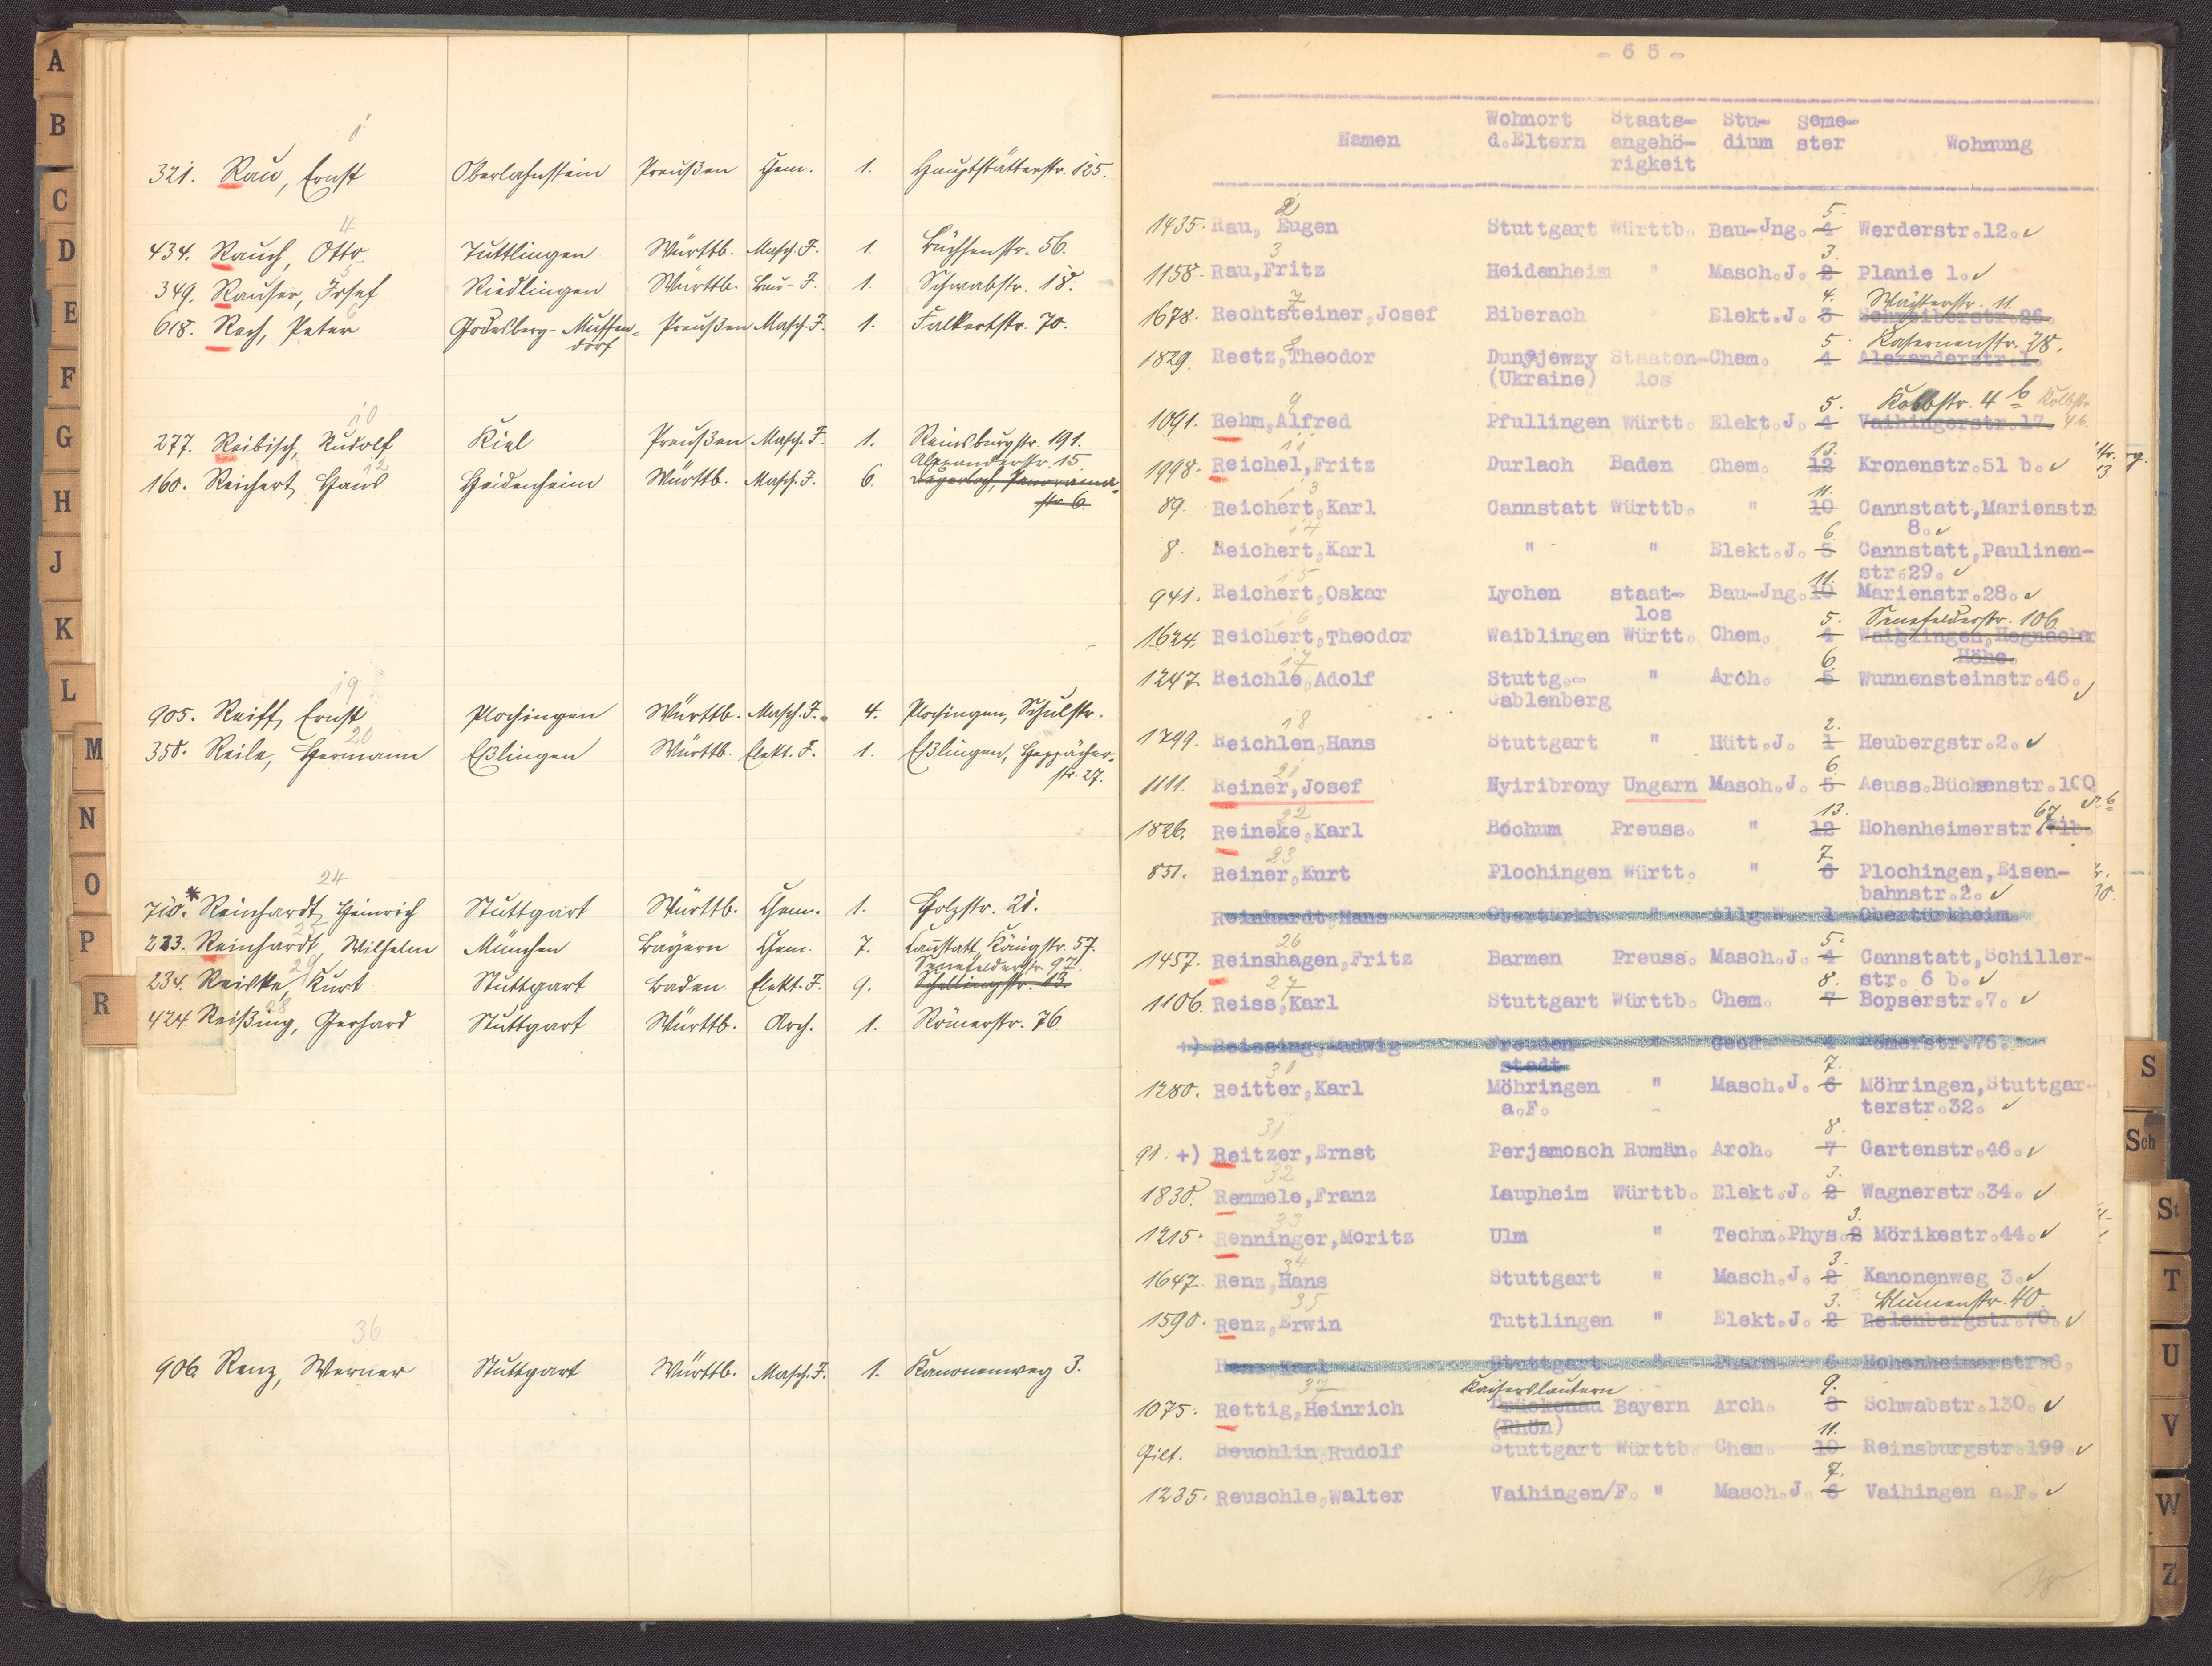 A
B
C
D
E
F
G
H
J
K
L
M
N
O
P
R
1
321. Rau, Ernst Oberlahnstein Preußen Chem. 1. Hauptstätterstr. 125.
4
434. Rauch, Otto Tuttlingen Württb. Masch. J. 1. Büchsenstr. 56.
5
349. Rauser, Josef Riedlingen Württb. Bau-J. 1. Schwabstr. 18.
6
618. Rech, Peter Godesberg-Muffen- Preußen Masch. J. 1. Falkertstr. 70.
dorf
10
277. Reibisch, Rudolf Kiel Preußen Masch. J. 1. Reinsburgstr. 191.
12 Alexanderstr. 15.
160. Reichert, Hans Heidenheim Württb. Masch. J. 6. Degerloch, Panorama-
str. 6.
19
905. Reiff, Ernst Plochingen Württb. Masch. J. 4. Plochingen, Schulstr.
20
358. Reile, Hermann Eßlingen Württb. Elekt. J. 1. Eßlingen,
str. 27.
24
710.* Reinhardt, Heinrich Stuttgart Württb. Chem. 1. Holzstr. 21.
25
223. Reinhardt, Wilhelm München Bayern Chem. 7. Cannstatt, Königstr. 57.
29 Senefelderstr. 97.
234. Reiske, Kurt Stuttgart Baden Elekt. J. 9. Schellingstr. 13.
28
424. Reißing, Gerhard Stuttgart Württb. Arch. 1. Römerstr. 76.
36
906. Renz, Werner Stuttgart Württb. Masch. J. 1. Kanonenweg 3.
- 6 5 -
Wohnort Staats- Stu- Seme-
Namen d.Eltern angehö- dium ster Wohnung
rigkeit
2 5.
1435. Rau, Eugen Stuttgart Württb. Bau-Jng. 4 Werderstr.12.
3 3.
1158. Rau,Fritz Heidenheim " Masch.J. 2 Planie 1.
7 4. Wächterstr. 11
1678. Rechtsteiner,Josef Biberach " Elekt.J. 3 Schreiberstr.26.
8 5. Kasernenstr. 38.
1829. Reetz,Theodor Dunajewzy Staaten- Chem. 4 Alexanderstr.1.
(Ukraine) los
9 5. Kolbstr. 4 b Kolbstr.
1091. Rehm,Alfred Pfullingen Württ. Elekt.J. 4 Vaihingerstr.17. 4b.
11 13.
1998. Reichel,Fritz Durlach Baden Chem. 12 Kronenstr.51 b.
13 11.
89. Reichert,Karl Cannstatt Württb. " 10 Cannstatt,Marienstr.
14 6. 8.
8. Reichert,Karl " " Elekt.J. 5 Cannstatt,Paulinen-
15 11. str.29.
941. Reichert,Oskar Lychen staat- Bau-Jng. 10 Marienstr.28.
los
16 5. Senefelderstr. 106
1624. Reichert,Theodor Waiblingen Württ. Chem. 4 Waiblingen,Hegnacher
Höhe.
17 6.
1247. Reichle,Adolf Stuttg.- " Arch. 5 Wunnensteinstr.46.
Gablenberg
18 2.
1799. Reichlen,Hans Stuttgart " Hütt.J. 1 Heubergstr.2.
21 6
1111. Reiner,Josef Nyiribrony Ungarn Masch.J. 5 Aeuss.Büchsenstr.100
22 13. 67.
1826. Reineke,Karl Bochum Preuss. " 12 Hohenheimerstr.
23 7
851. Reiner,Kurt Plochingen Württ. " 6 Plochingen,Eisen-
bahnstr.2.
Reinhardt,Hans Obertürkh. " Allg.W. 1 Obertürkheim
26 5.
1457. Reinshagen,Fritz Barmen Preuss. Masch.J. 4 Cannstatt,Schiller-
27 8. str. 6 b.
1106. Reiss,Karl Stuttgart Württb. Chem. 7 Bopserstr.7.
+) Reissing,Ludwig Freuden- " Geod. 4 Römerstr.76.
stadt
30 7.
1280. Reitter,Karl Möhringen " Masch.J. 6 Möhringen,Stuttgar-
a.F. terstr.32.
31 8.
91. +) Reitzer,Ernst Perjamosch Rumän. Arch. 7 Gartenstr.46.
32 3.
1838. Remmele,Franz Laupheim Württb. Elekt.J. 2 Wagnerstr.34.
33 3.
1215. Renninger,Moritz Ulm " Techn.Phys. 2 Mörikestr.44.
34 3.
1647. Renz,Hans Stuttgart " Masch.J. 2 Kanonenweg 3.
35 3. Blumenstr. 40.
1590. Renz,Erwin Tuttlingen " Elekt.J. 2 Relenbergstr.70.
Renz,Karl Stuttgart " Pharm. 6 Hohenheimerstr.6.
37 Kaiserslautern 9.
1075. Rettig,Heinrich Brückenau Bayern Arch. 8 Schwabstr.130.
(Rhön) 11.
Gilt. Reuchlin,Rudolf Stuttgart Württb. Chem. 10 Reinsburgstr.199.
7.
1235. Reuschle,Walter Vaihingen/F. " Masch.J. 6 Vaihingen a.F.
38
S
Sch
St
T
U
V
W
Z